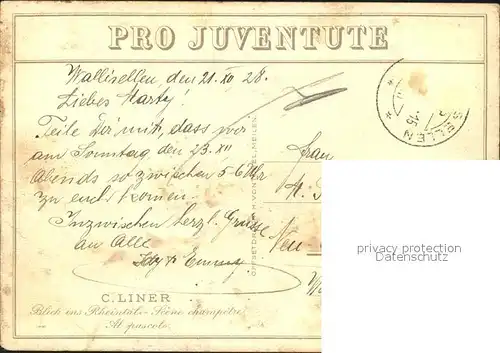 PRO JUVENTUTE
Wallisellen den 21. XII 28.
Liebes Marty!
Teile Dir mit, dass wir
am Sonntag den 23. XII
Abends so zwischen 5-6 Uhr
zu euch kommen.
Inzwischen herzl. Grüsse
an Alle
Emmy
Frau
Neu-
SELLEN
15
OFFSETDRUCK H. VONTOBEL, MEILEN
C. LINER
Blick ins Rheintal - Scène champêtre
Al pascolo
privacy protection
Datenschutz